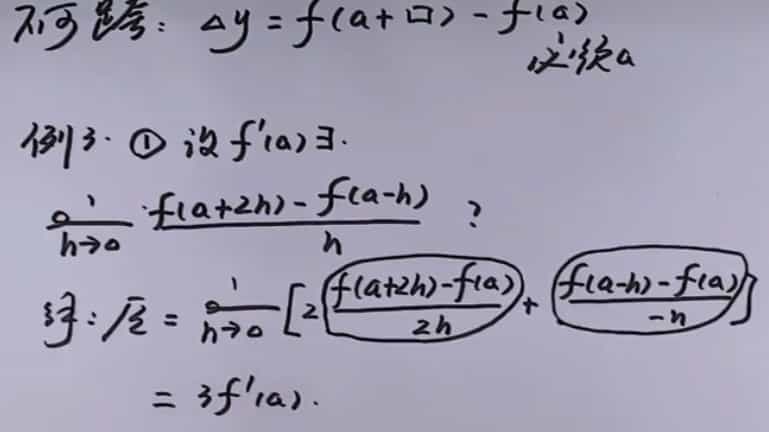 不可跨: Δy = f(a+口) - f(a)
必须a
例3. ① 设 f'(a)∃.
h→0 f(a+2h) - f(a-h) / h ?
解: 原 = h→0 [2 f(a+2h)-f(a) / 2h + f(a-h)-f(a) / -h]
= 3f'(a).